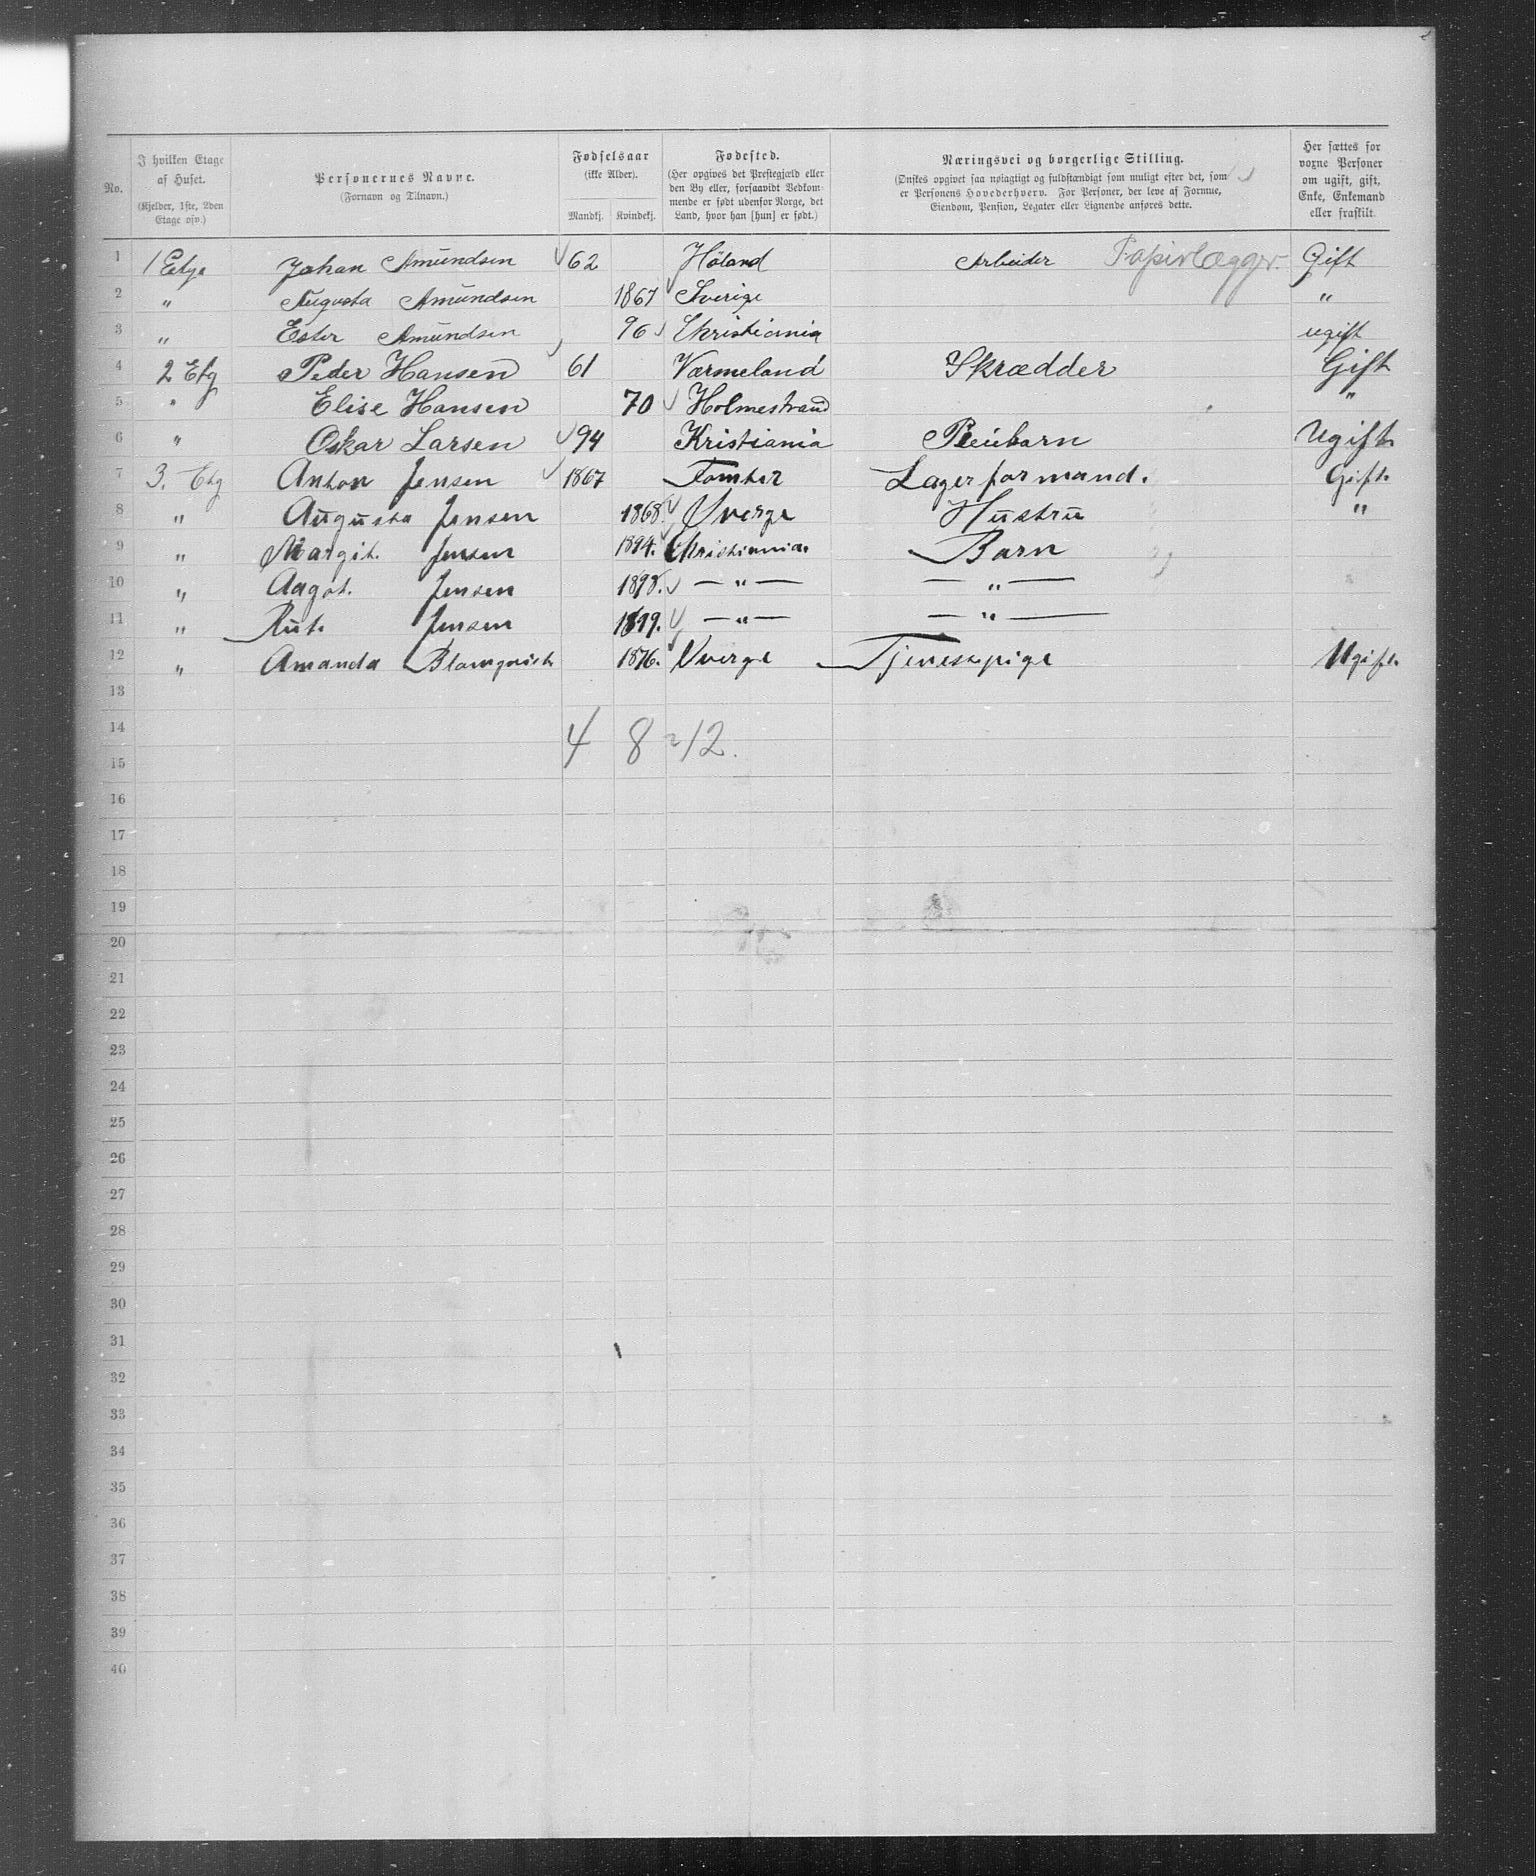 No.
I hvilken Etage af Huset.
(Kjelder, 1ste, 2den Etage osv.)
Personernes Navne.
(Fornavn og Tilnavn.)
Fødselsaar
(ikke Alder).
Mandkj. Kvindekj.
Fødested.
(Her opgives det Prestegjæld eller
den By eller, forsaavidt Vedkom-
mende er født udenfor Norge, det
Land, hvor han [hun] er født.)
Næringsvei og borgerlige Stilling.
(Ønskes opgivet saa nøiagtigt og fuldstændigt som muligt efter det, som
er Personens Hovederhverv. For Personer, der leve af Formue,
Eiendom, Pension, Legater eller Lignende anføres dette.
Her sættes for
voxne Personer
om ugift, gift,
Enke, Enkemand
eller fraskilt.
1 1 Etge Johan Amundsen 62 Høland Arbeider Papirlægger. Gift
2 " Augusta Amundsen 1867 Sverige "
3 " Ester Amundsen 96 Christiania ugift
4 2 Etg Peder Hansen 61 Værmeland Skrædder Gift
5 " Elise Hansen 70 Holmestrand "
6 " Oskar Larsen 94 Kristiania Pleiebarn Ugift
7 3. Etg Anton Jensen 1867 Tomter Lagerformand. Gift.
8 " Augusta Jensen 1868. Sverge Hustru "
9 " Margit. Jensen 1894. Christiania. Barn
10 " Aagot. Jensen 1898. — " — — " —
11 " Rut. Jensen 1899. — " — — " —
12 " Amanda Blomqvist 1876. Sverge Tjenestpige Ugift.
13
14
4 8 = 12.
15
16
17
18
19
20
21
22
23
24
25
26
27
28
29
30
31
32
33
34
35
36
37
38
39
40